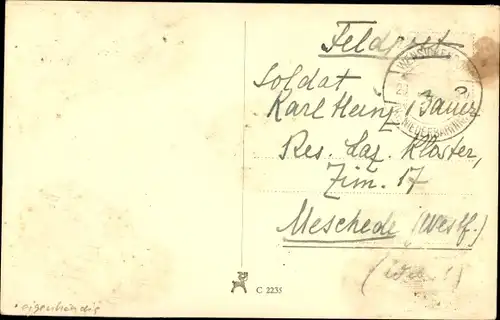 Feldpost
Soldat
Karl Heinz Bauer
Res. Laz. Kloster,
Zim. 17
Meschede (Westf.)
C 2235
eigenhändig